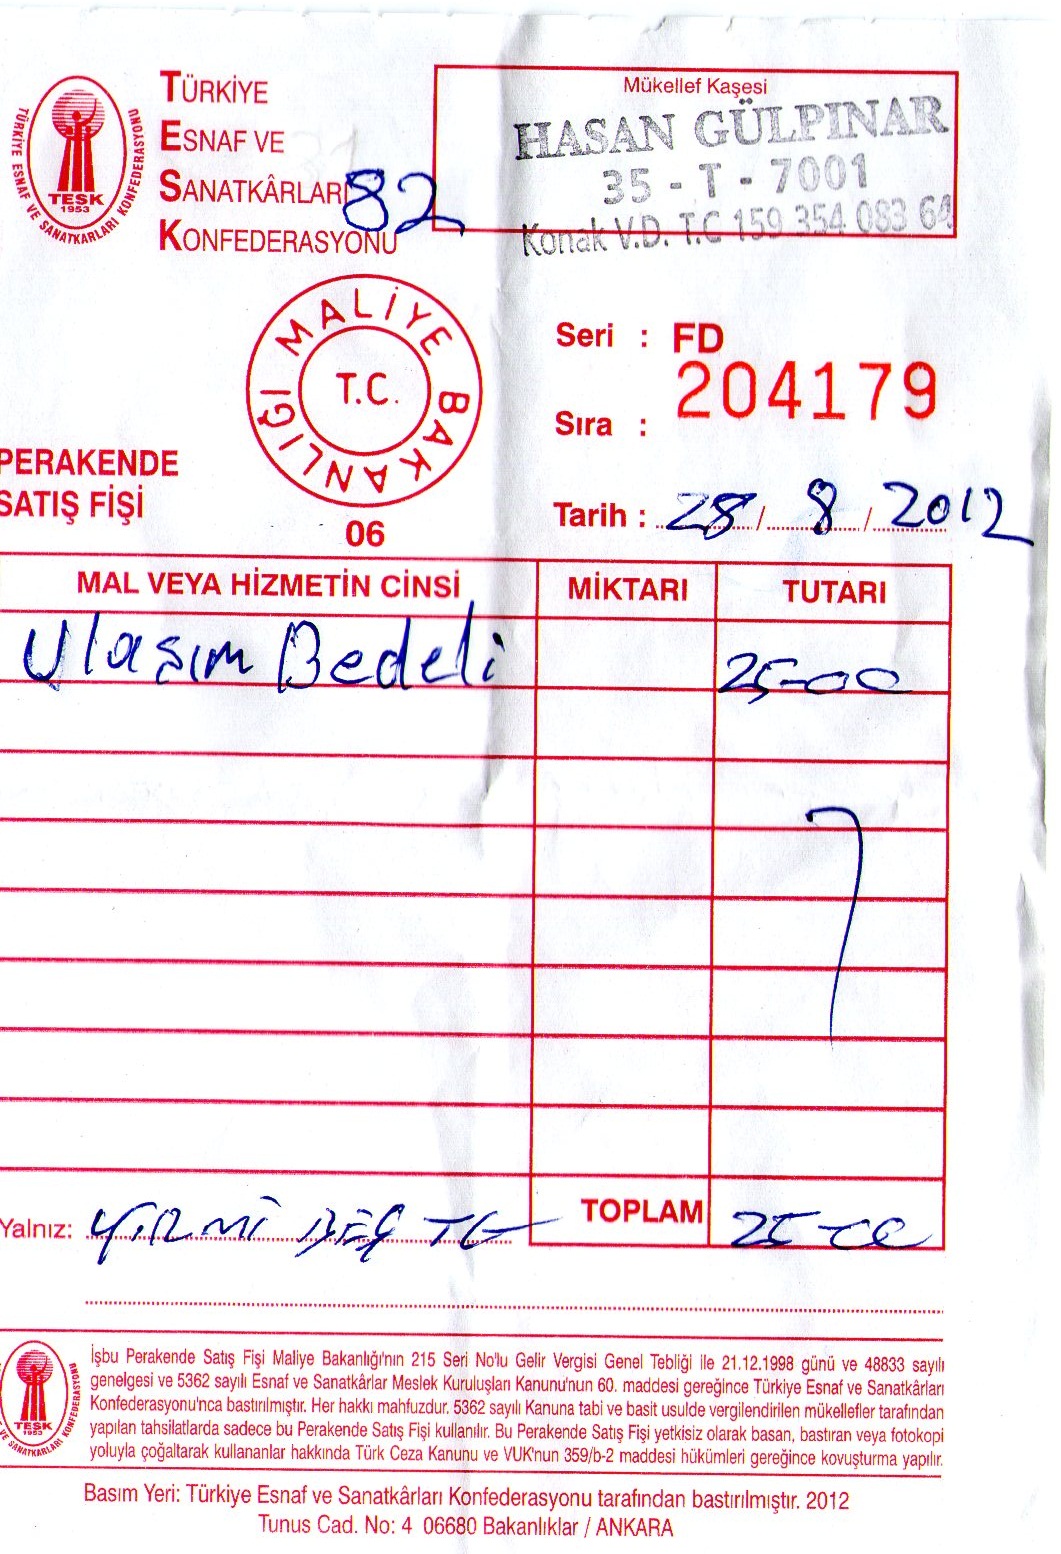 TÜRKİYE ESNAF VE SANATKARLARI KONFEDERASYONU
TESK
1953
TÜRKİYE
ESNAF VE
SANATKÂRLARI
KONFEDERASYONU
82
Mükellef Kaşesi
HASAN GÜLPINAR
35 - T - 7001
Konak V.D. T.C 159 354 083 64
MALİYE BAKANLIĞI
T.C.
06
Seri : FD
204179
Sıra :
PERAKENDE
SATIŞ FİŞİ
Tarih : 28 / 8 / 2012
MAL VEYA HİZMETİN CİNSİ MİKTARI TUTARI
Ulaşım Bedeli 25-00
Yalnız: YİRMİ BEŞ TL TOPLAM 25-00
TÜRKİYE ESNAF VE SANATKARLARI KONFEDERASYONU
TESK
1953
İşbu Perakende Satış Fişi Maliye Bakanlığı'nın 215 Seri No'lu Gelir Vergisi Genel Tebliği ile 21.12.1998 günü ve 48833 sayılı
genelgesi ve 5362 sayılı Esnaf ve Sanatkârlar Meslek Kuruluşları Kanunu'nun 60. maddesi gereğince Türkiye Esnaf ve Sanatkârları
Konfederasyonu'nca bastırılmıştır. Her hakkı mahfuzdur. 5362 sayılı Kanuna tabi ve basit usulde vergilendirilen mükellefler tarafından
yapılan tahsilatlarda sadece bu Perakende Satış Fişi kullanılır. Bu Perakende Satış Fişi yetkisiz olarak basan, bastıran veya fotokopi
yoluyla çoğaltarak kullananlar hakkında Türk Ceza Kanunu ve VUK'nun 359/b-2 maddesi hükümleri gereğince kovuşturma yapılır.
Basım Yeri: Türkiye Esnaf ve Sanatkârları Konfederasyonu tarafından bastırılmıştır. 2012
Tunus Cad. No: 4 06680 Bakanlıklar / ANKARA